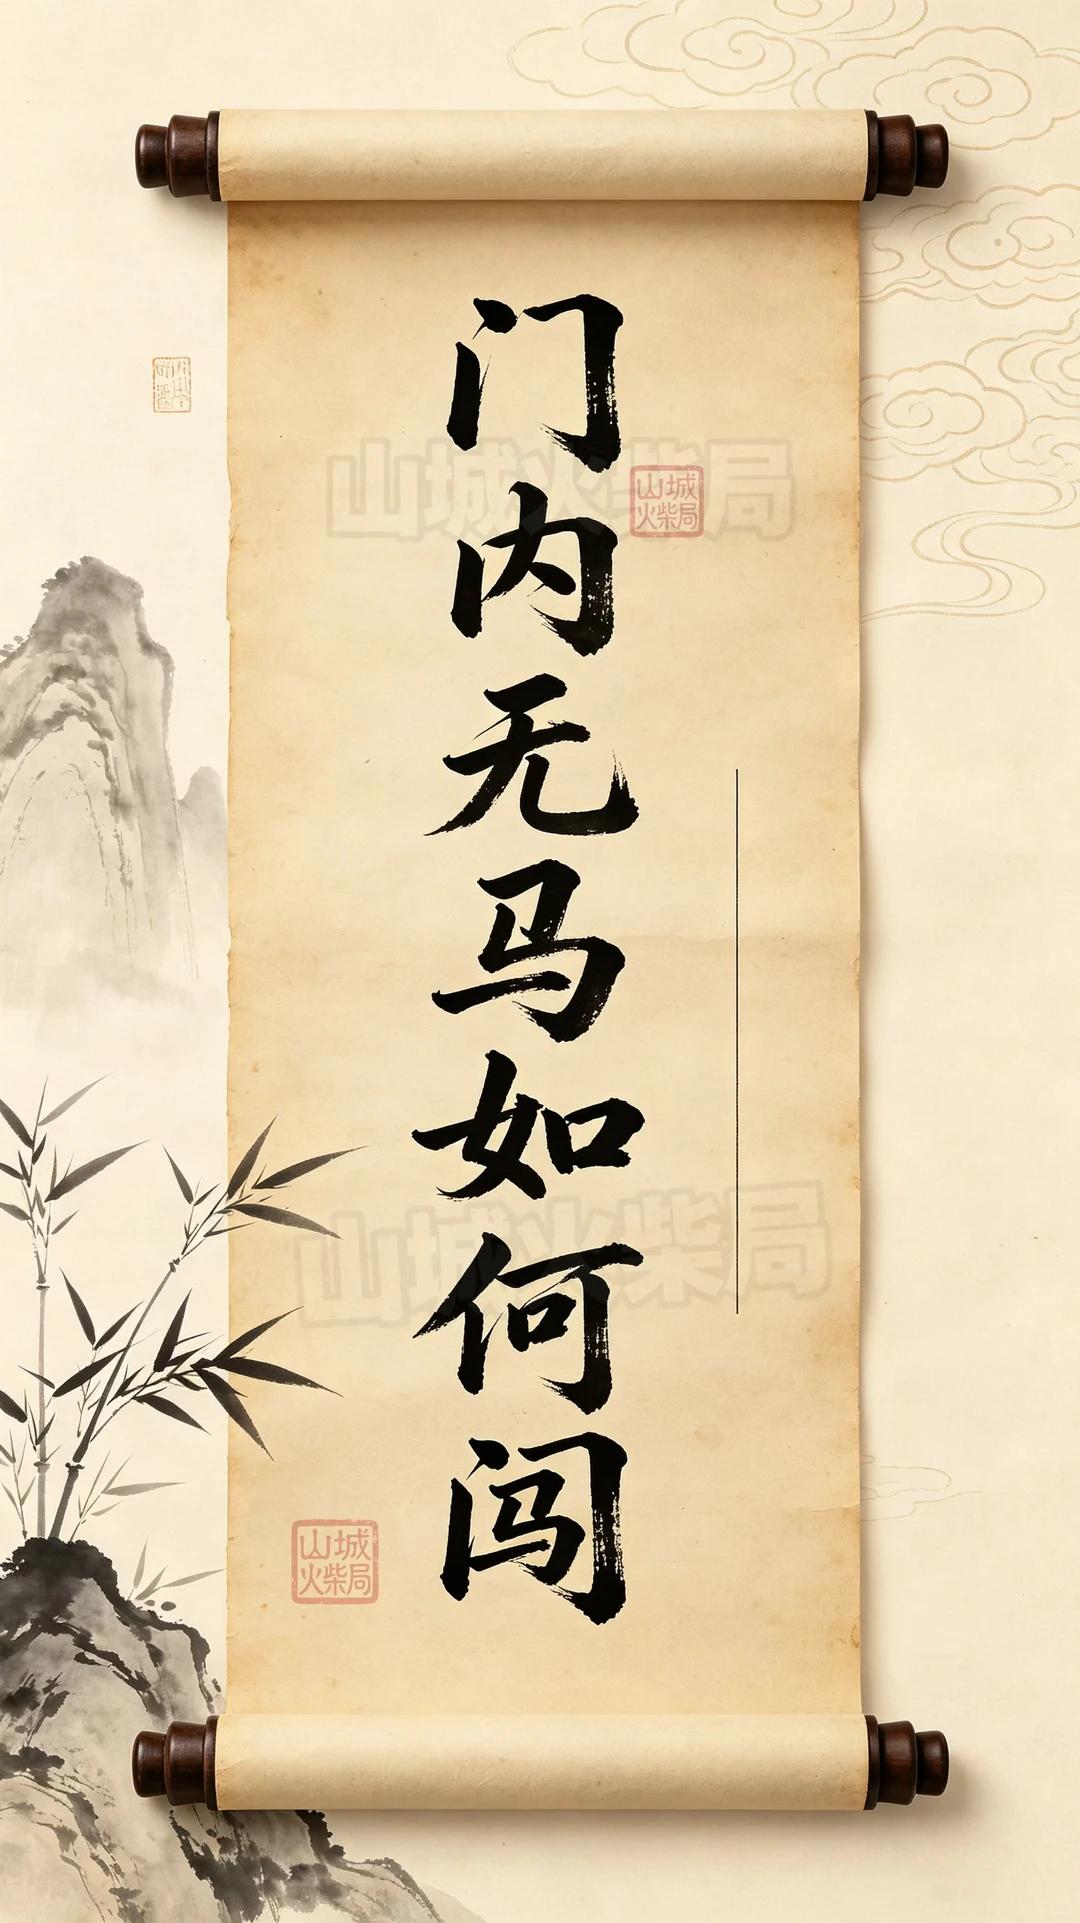 门内无马如何闯
山城火柴局
山城
火柴局
山城火柴局
山城
火柴局